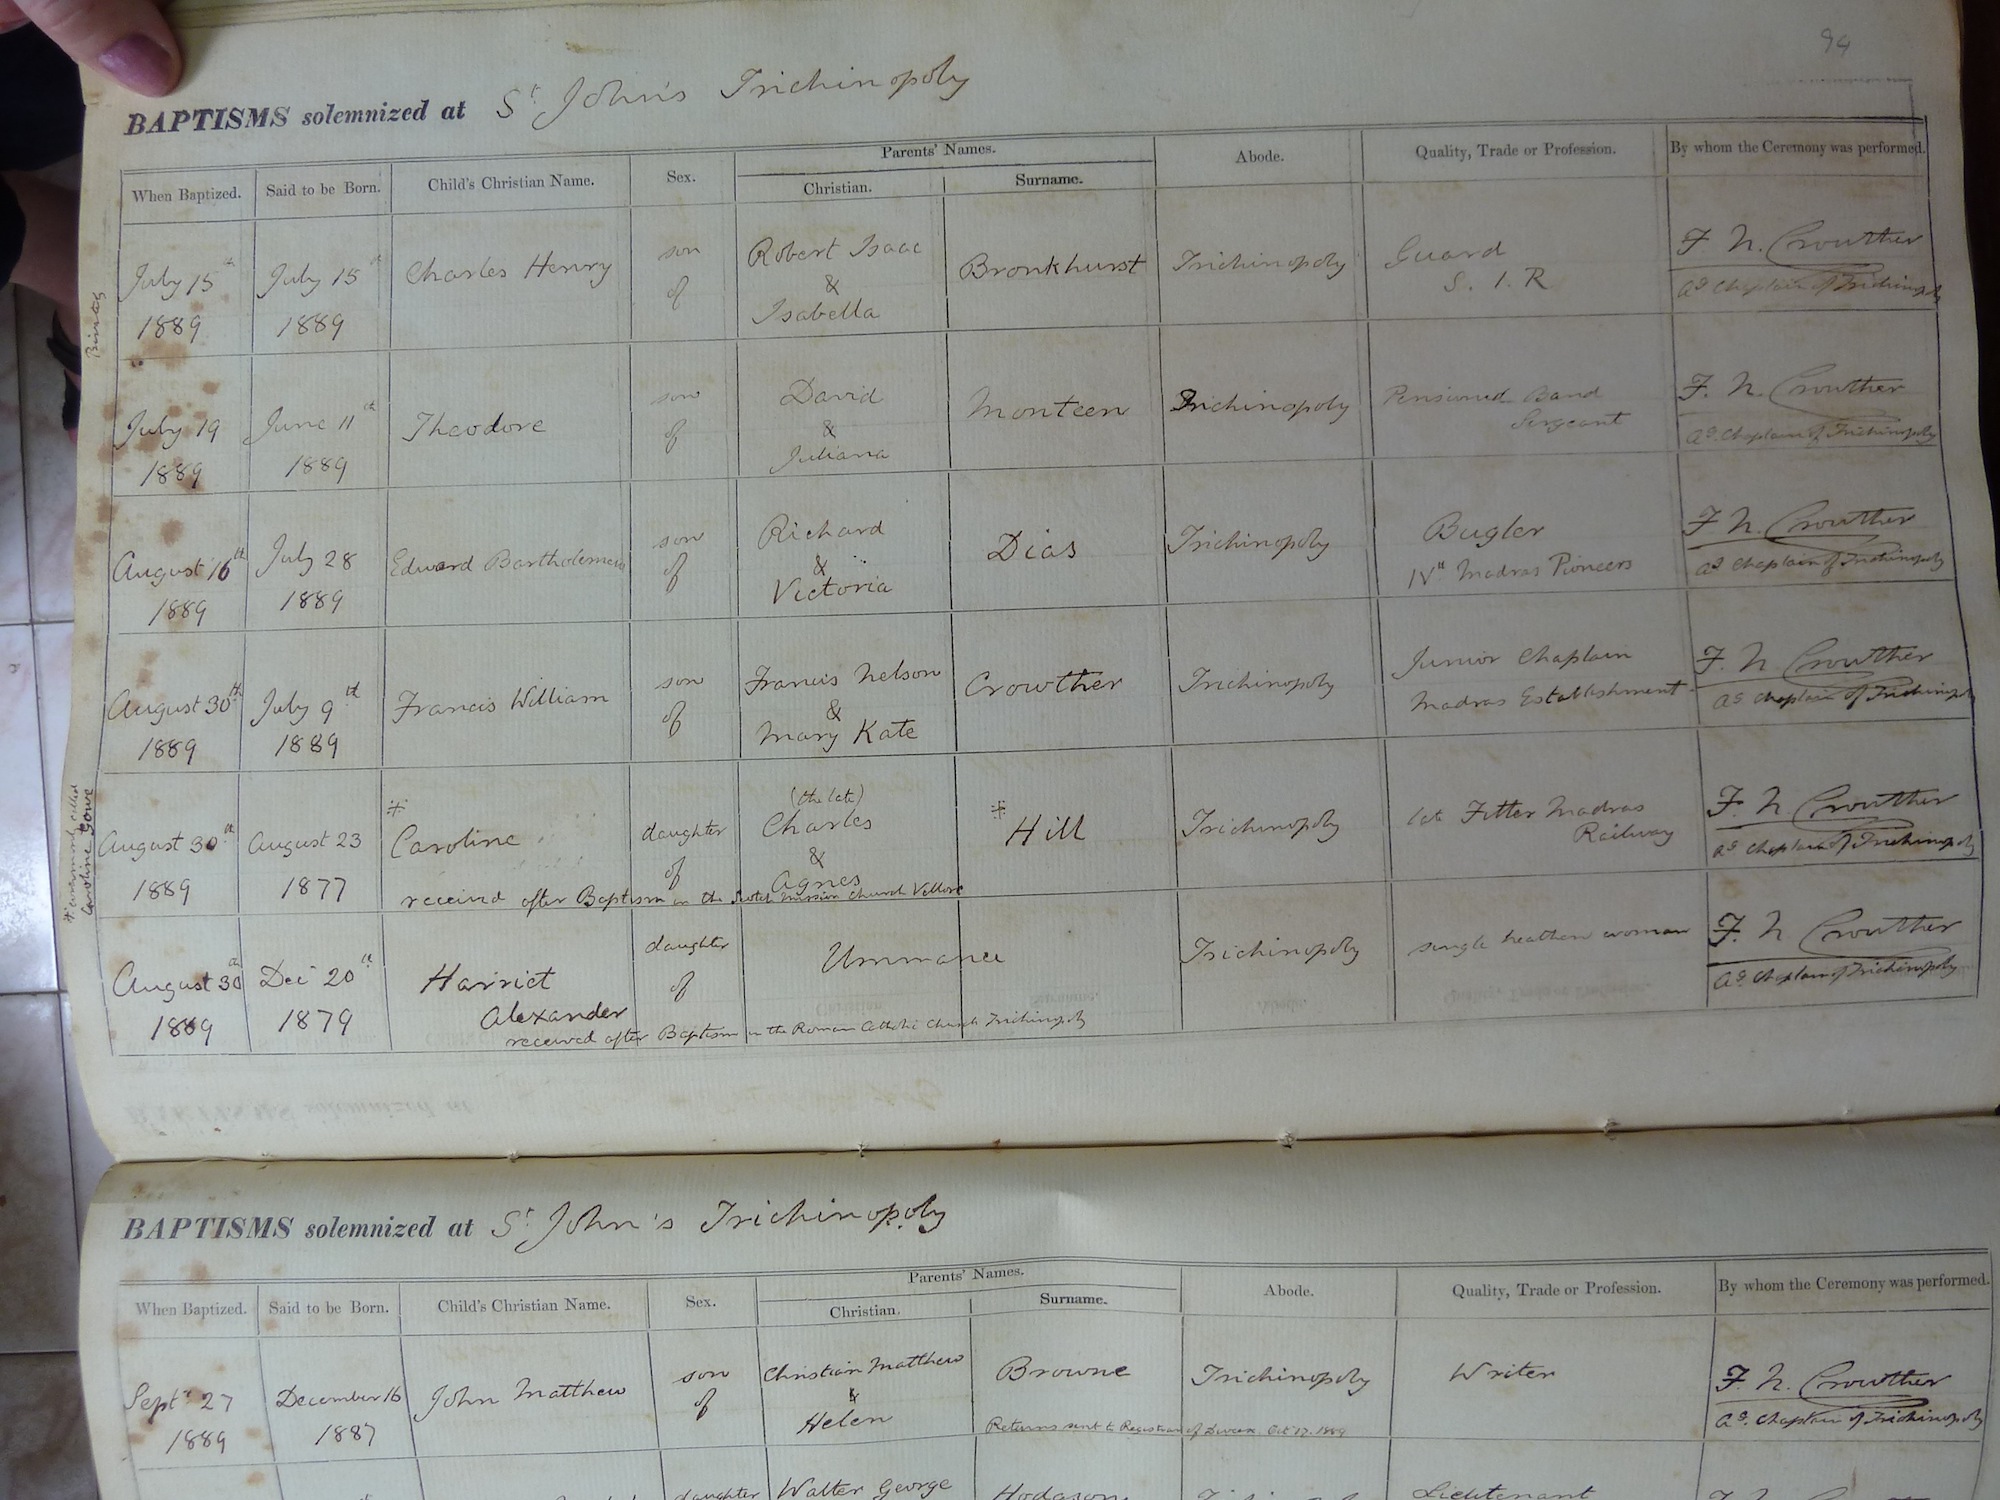 94
BAPTISMS solemnized at St John's Trichinopoly
Parents' Names.
When Baptized. Said to be Born. Child's Christian Name. Sex. Christian. Surname. Abode. Quality, Trade or Profession. By whom the Ceremony was performed.
July 15th 1889 July 15th 1889 Charles Henry son of Robert Isaac & Isabella Bronkhurst Trichinopoly Guard S. I. R F N. Crowther
ag Chaplain of Trichinopoly
July 19 1889 June 11th 1889 Theodore son of David & Juliana Monteen Trichinopoly Pensioned Band Sergeant F. N. Crowther
ag Chaplain of Trichinopoly
August 16th 1889 July 28 1889 Edward Bartholemew son of Richard & Victoria Dias Trichinopoly Bugler IVth Madras Pioneers F N. Crowther
ag Chaplain of Trichinopoly
August 30th 1889 July 9th 1889 Francis William son of Francis Nelson & Mary Kate Crowther Trichinopoly Junior Chaplain Madras Establishment F. N Crowther
ag Chaplain of Trichinopoly
* commonly called
Caroline Gowe
August 30th 1889 August 23 1877 * Caroline daughter of (the late) Charles & Agnes * Hill Trichinopoly lat Fitter Madras Railway F. N Crowther
ag Chaplain of Trichinopoly
received after Baptism in the Scotch Mission Church Vellore
August 30th 1889 Dec 20th 1879 Harriet Alexander daughter of Ummanee Trichinopoly single heathen woman F. N Crowther
ag Chaplain of Trichinopoly
received after Baptism in the Roman Catholic Church Trichinopoly
BAPTISMS solemnized at St John's Trichinopoly
Parents' Names.
When Baptized. Said to be Born. Child's Christian Name. Sex. Christian. Surname. Abode. Quality, Trade or Profession. By whom the Ceremony was performed.
Septr 27 1889 December 16 1887 John Matthew son of Christian Matthew & Helen Browne Trichinopoly Writer F. N. Crowther
ag. Chaplain of Trichinopoly
Returns sent to Registrar of Diocese Oct 17. 1889
daughter Walter George Hodgson Lieutenant